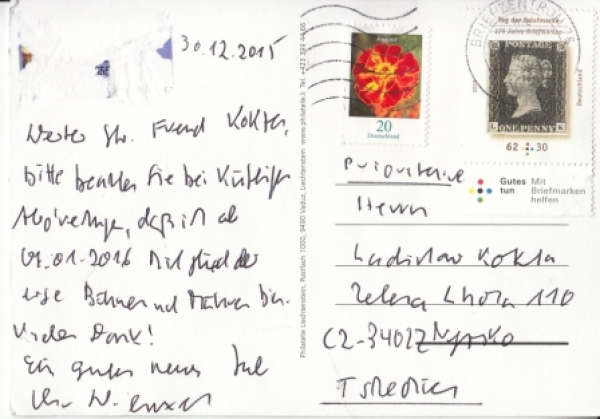 30.12.2015
Werter Hr. Freund Kokta,
bitte beachten Sie bei künftiger
daß ich ab
01.01.2016 Mitglied der
Böhmen und Mähren bin.
Vielen Dank!
Ein gutes neues
Ihr
Philatelie Liechtenstein, Postfach 1000, 9490 Vaduz, Liechtenstein www.philatelie.li Tel. +423 399 44 66
20
Deutschland
BRIEFZENTRUM
Tag der Briefmarke
175 Jahre Briefmarke
POSTAGE
ONE PENNY
Deutschland
62 + 30
Gutes tun
Mit Briefmarken helfen
Prioritaire
Herrn
Ladislav Kokta
Zelena Lhota 110
CZ-34022 Nyrsko